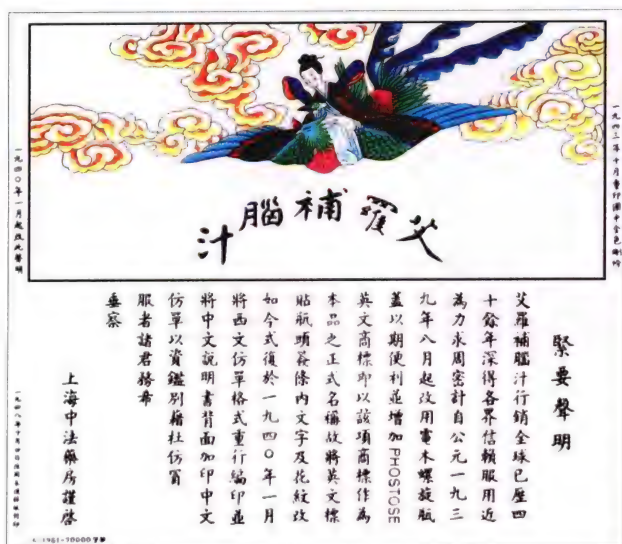 艾羅補腦汁
年十月重印圖中金色
緊要聲明
艾羅補腦汁行銷全球已歷四
十餘年深得各界信賴服用近
為力求周密計自公元一九三
九年八月起改用電木螺旋瓶
蓋以期便利並增加PHOSTOSE
英文商標即以該項商標作為
本品之正式名稱故將英文標
貼瓶頭簽條內文字及花紋改
如今式復於一九四〇年一月
將西文仿單格式重行編印並
將中文說明書背面加印中文
仿單以資鑑別藉杜仿冒
服者諸君務希
垂察
上海中法藥房謹啓
一九四〇年一月起改此聲明
一九四八年十月四日